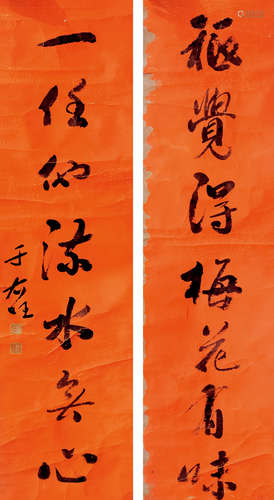 祗覺得梅花有味
一任他流水無心
于右任